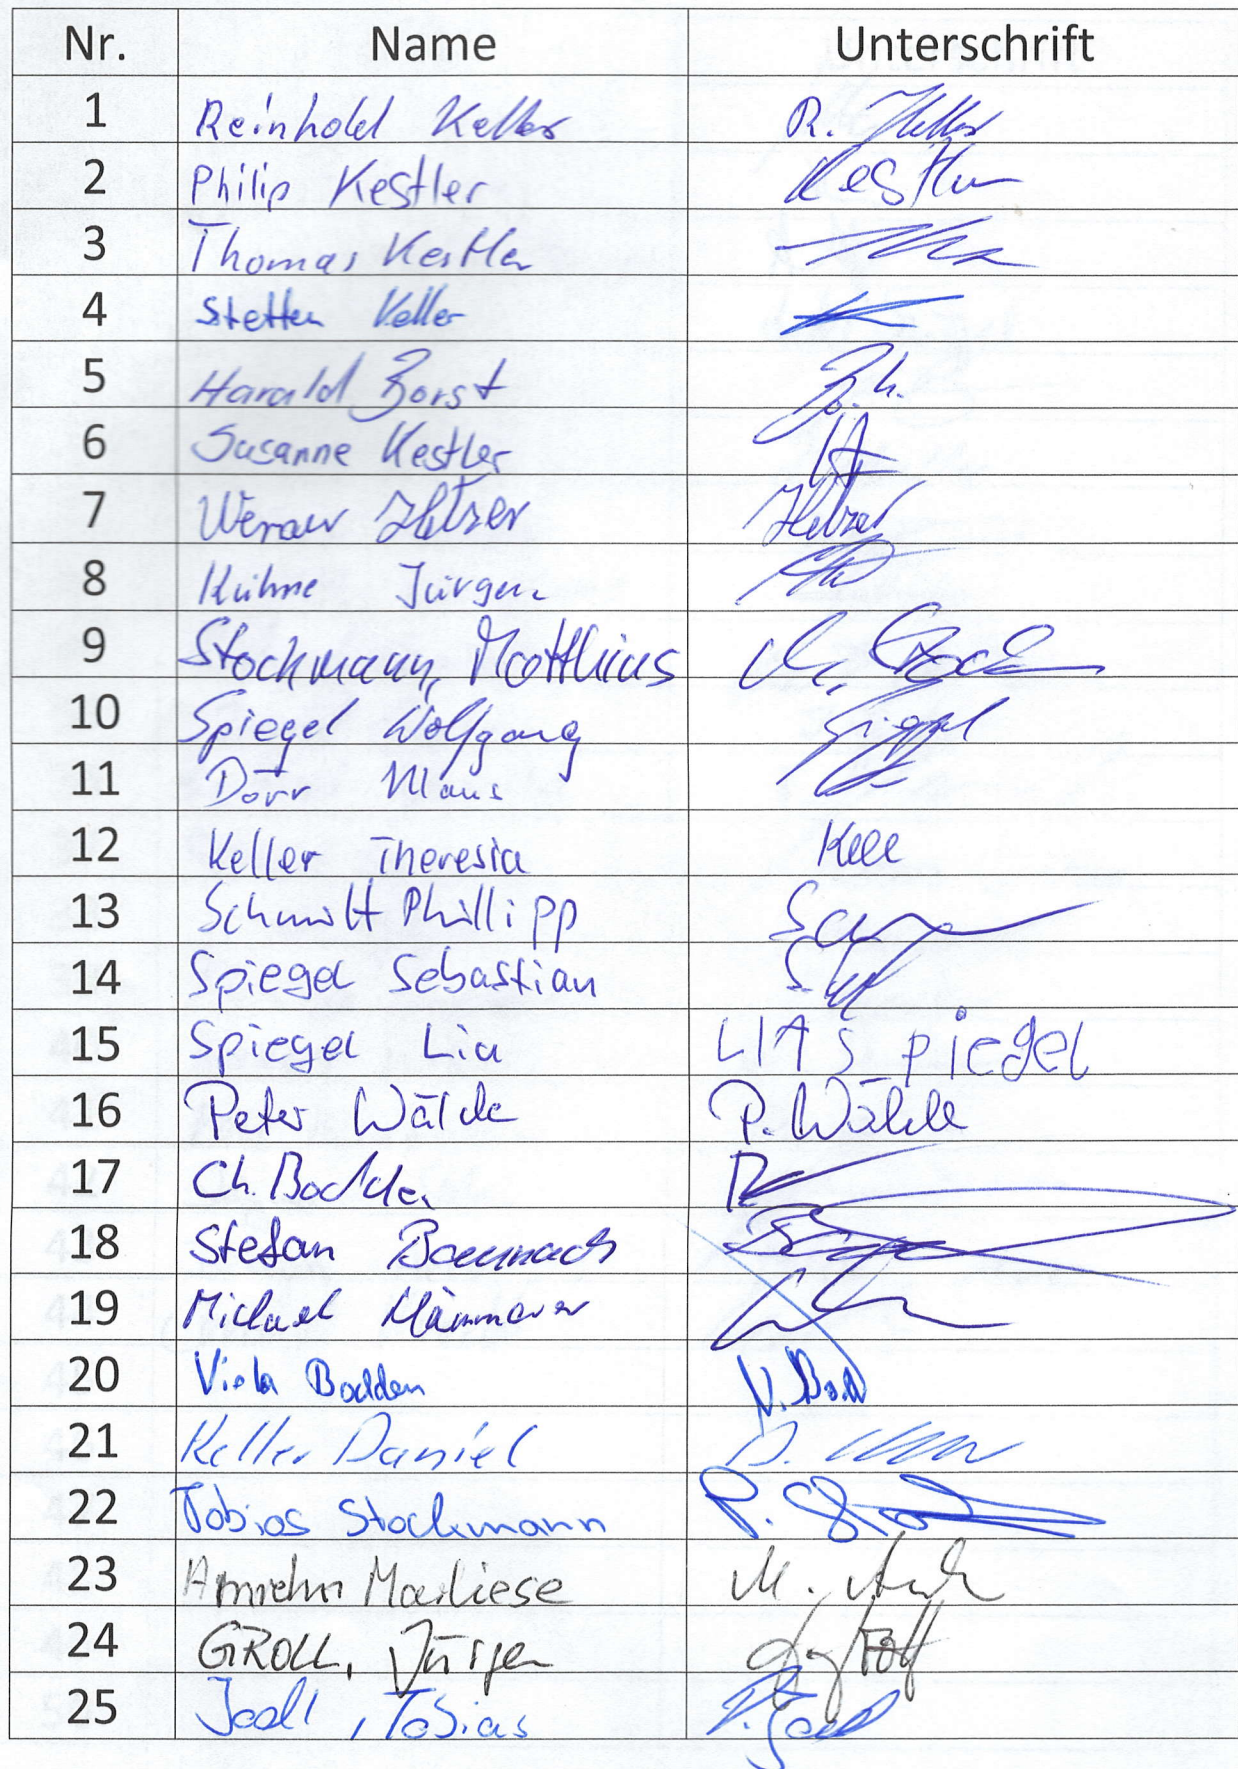 Nr. Name Unterschrift
1 Reinhold Keller R. Keller
2 Philip Kestler Kestler
3 Thomas Kestler
4 Steffen Keller
5 Harald Borst
6 Susanne Kestler
7 Werner Hetzer Hetzer
8 Kühne Jürgen
9 Stockmann, Matthias M. Stock
10 Spiegel Wolfgang Spiegel
11 Dörr Klaus
12 Keller Theresia Kell
13 Schmitt Phillipp
14 Spiegel Sebastian
15 Spiegel Lia LIA Spiegel
16 Peter Wälde P. Wälde
17 Ch. Bodden
18 Stefan Baunach
19 Michael Hämmerer
20 Viola Bodden V. Bodd
21 Keller Daniel D.
22 Tobias Stockmann
23 Amrehn Marliese M.
24 GROLL, Jürgen
25 Joall, Tobias